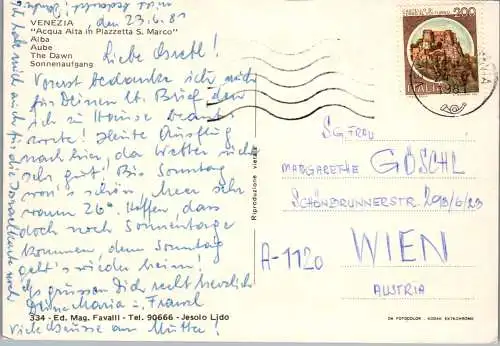 VENEZIA
"Acqua Alta in Piazzetta S. Marco"
Alba
Aube
The Dawn
Sonnenaufgang
den 23.6.81
Liebe Gretl!
Vorerst bedanke ich mich
für Deinen lb. Brief den
ich zu Hause beant-
worte! Heute Ausflug
nach hier, da Wetter nicht
sehr gut! Bis Sonntag
war's schön, Meer sehr
warm 26°. Hoffen, dass
doch noch Sonnentage
kommen, denn Sonntag
geht's wieder heim!
Es grüssen Dich recht herzlich
Deine Maria u. Franzl
Viele Grüsse an Mutti!
Ich habe mich auch für die Israelkarte noch
334 - Ed. Mag. Favalli - Tel. 90666 - Jesolo Lido
Riproduzione vietata
200
ITALIA
S.G. FRAU
MARGARETHE GÖSCHL
SCHÖNBRUNNERSTR. 293/6/23
A-1120 WIEN
AUSTRIA
DA FOTOCOLOR - KODAK EKTACHROME